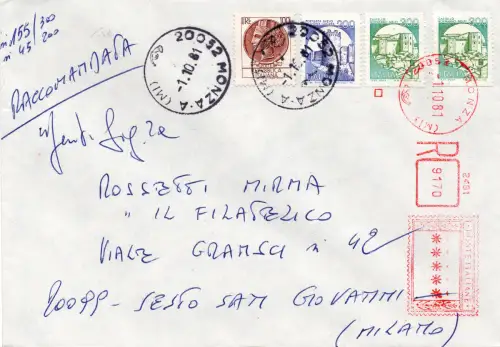 n 155/300
n 45 200
RACCOMANDATA
20052 MONZA-A (MI)
-1.10.81
LIRE 100
200
20052 MONZA-A (MI)
-1.10.81
200
200
20052 MONZA (MI)
1.10.81
R
9170
2451
Gent. Sig.ra
ROSSETTI MIRMA
" IL FILATELICO
VIALE GRAMSCI n 42
20099 - SESTO SAN GIOVANNI
(MILANO)